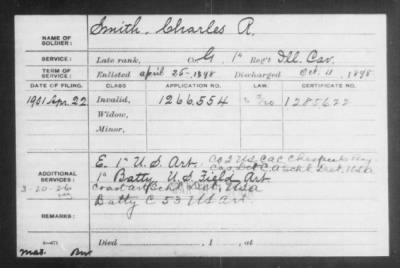 NAME OF SOLDIER: Smith, Charles R.
SERVICE: Late rank, Co. G, 1st Reg't Ill. Cav.
TERM OF SERVICE: Enlisted April 25-, 1898 Discharged Oct. 11, 1898
DATE OF FILING. CLASS APPLICATION NO. LAW. CERTIFICATE NO.
1901 Apr. 22 Invalid, 1266.554 1285677
Widow,
Minor,
ADDITIONAL SERVICES: E. 1st U.S. Art. Co 2 U.S. CAC
1st Batty U.S. Field Art.
3-20-26 Coast Art Schl Det, USA
Batty C 53 US Art.
REMARKS:
Died , 1 , at